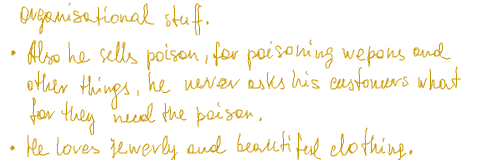 organisational stuff.
• Also he sells poison, for poisoning wepons and
other things, he never asks his customers what
for they need the poison.
• He loves jewerly and beautiful clothing.